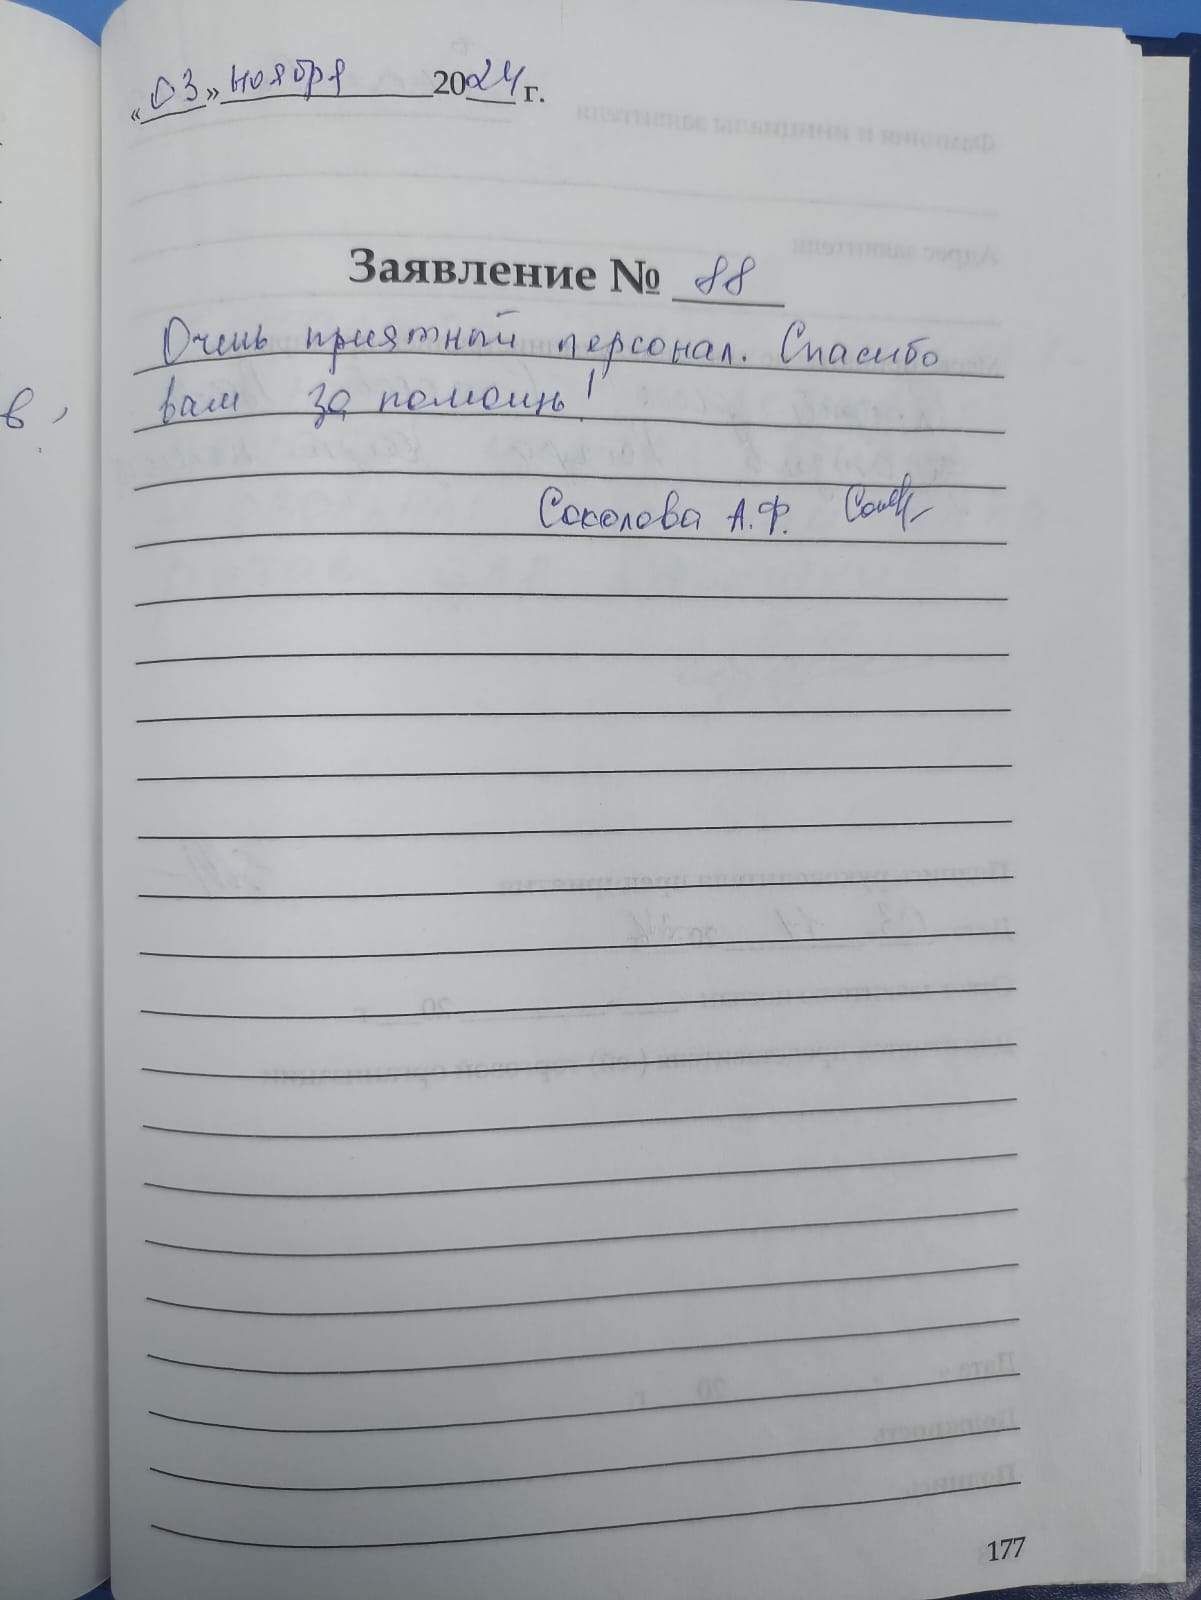 «03» ноября 2024 г.
Заявление № 88
Очень приятный персонал. Спасибо
вам за помощь!
в,
Соколова А.Ф.
177